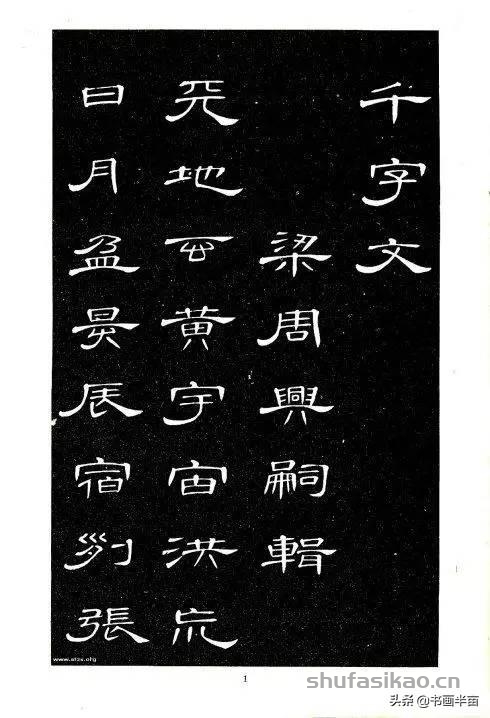 千字文
梁周興嗣輯
天地玄黃宇宙洪荒
日月盈昃辰宿列張
1
shufasikao.cn
头条 @书画半亩